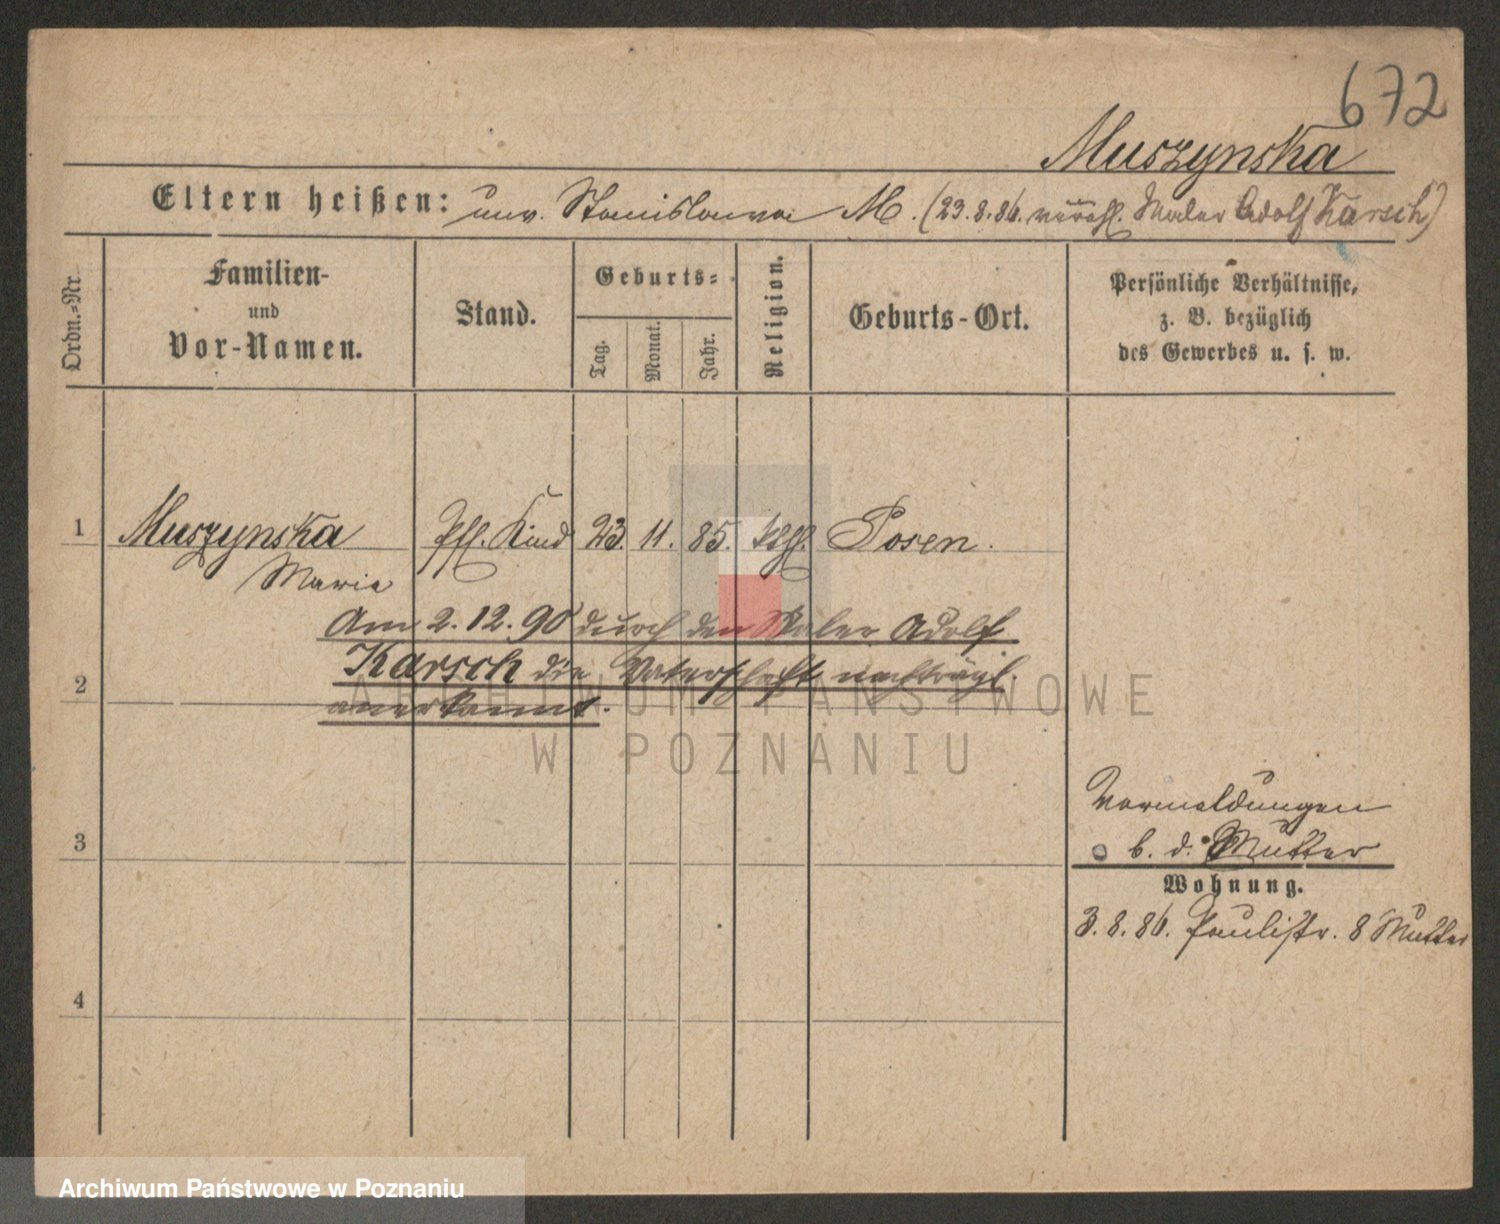 672
Muszynska
Eltern heißen: unv. Stanislawa M. (23.8.86. verehl. Maler Adolf Karsch)
Ordn.-Nr.
Familien-
und
Vor-Namen.
Stand.
Geburts-
Tag.
Monat.
Jahr.
Religion.
Geburts-Ort.
Persönliche Verhältnisse,
z. B. bezüglich
des Gewerbes u. s. w.
1 Muszynska Pfl. Kind 23. 11. 85. kthl. Posen.
Marie
Am 2.12.90 durch den Maler Adolf
Karsch die Vaterschaft nachträgl.
anerkannt.
2
3
4
Vormeldungen
b. d. Mutter
Wohnung.
3.8.86. Paulistr. 8 Mutter
ARCHIWUM PAŃSTWOWE
W POZNANIU
Archiwum Państwowe w Poznaniu